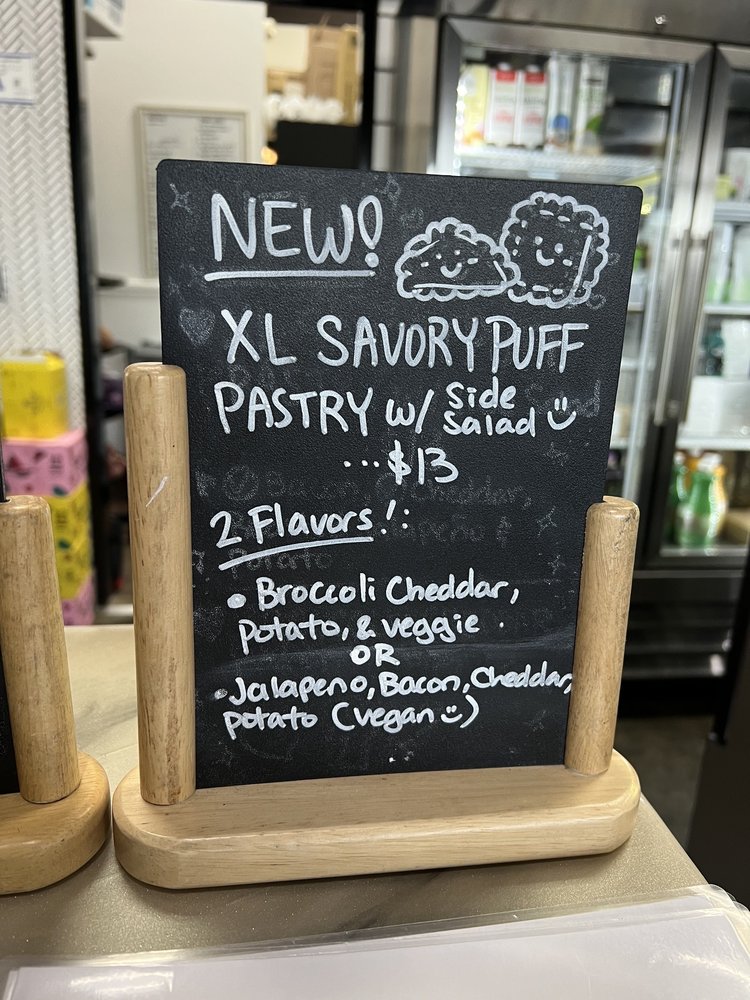 NEW!
XL SAVORY PUFF
PASTRY w/ side salad
...$13
2 Flavors!:
• Broccoli Cheddar,
potato, & veggie
OR
• Jalapeno, Bacon, Cheddar,
potato (vegan)